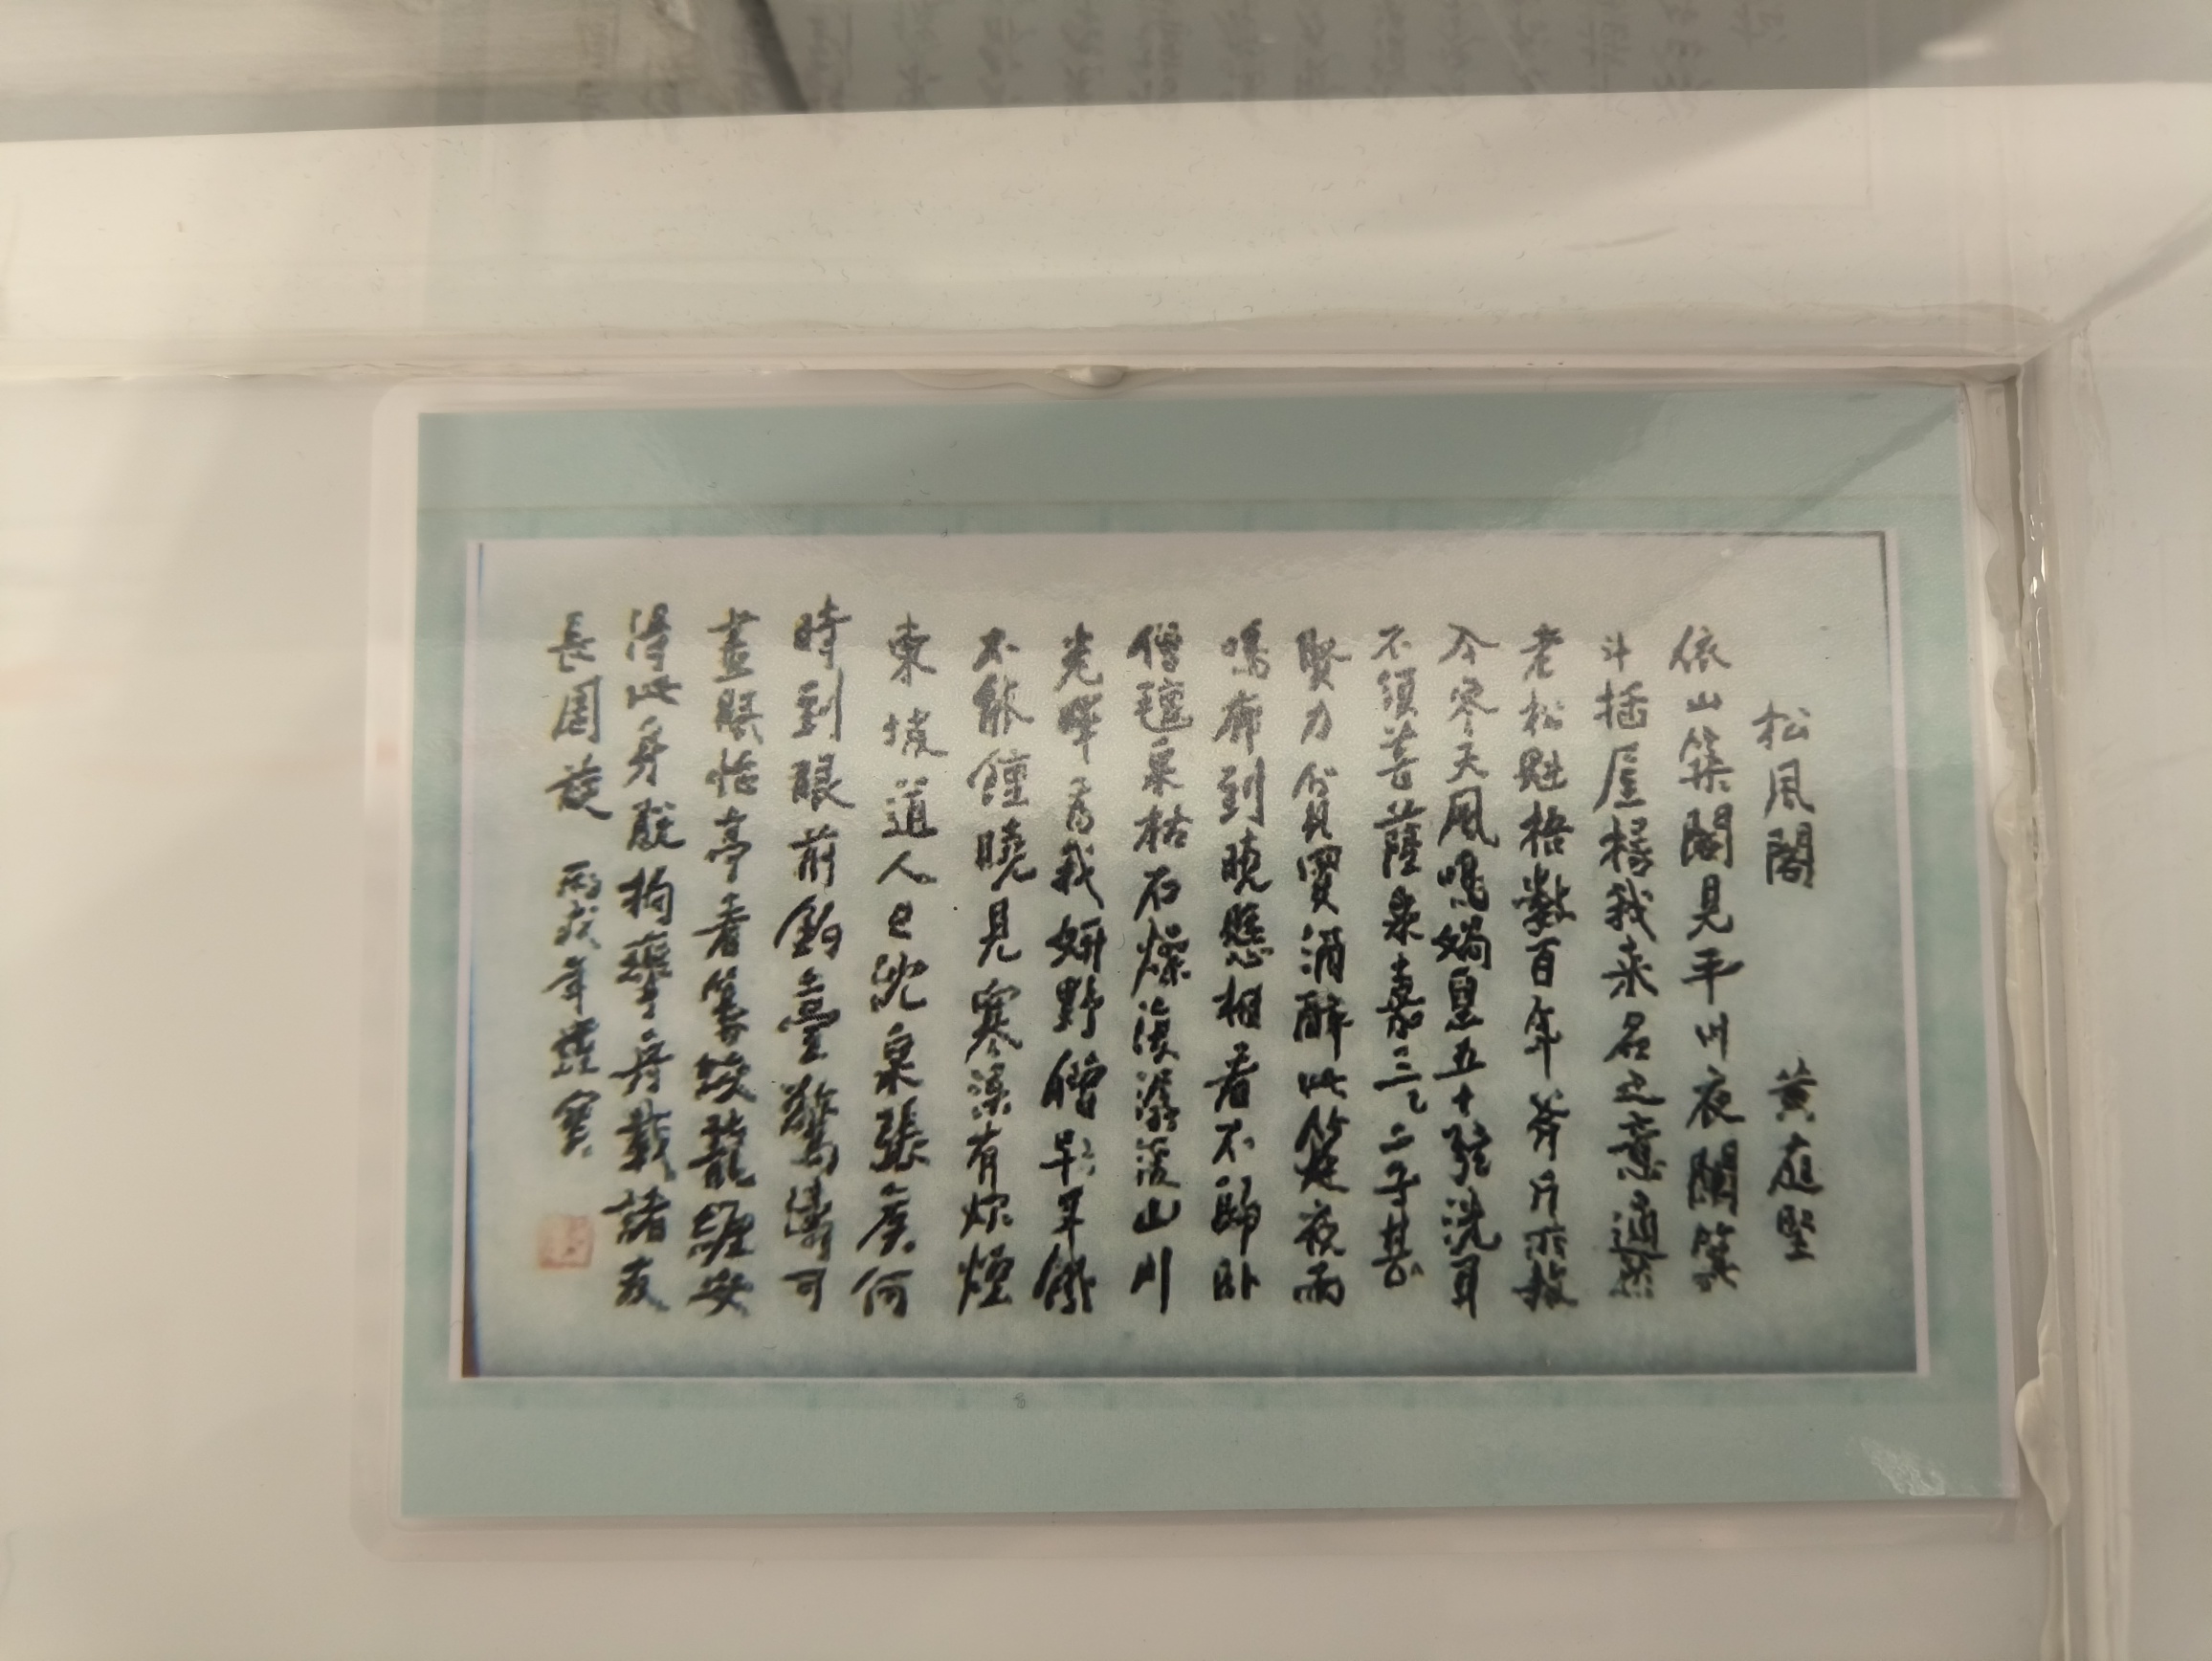 松風閣 黃庭堅
依山築閣見平川夜闌箕
斗插屋椽我来名之意適然
老松魁梧數百年斧斤所赦
今参天風鳴媧皇五十弦洗耳
不須菩薩泉嘉二三子甚
賢力貧買酒醉此筵夜雨
鳴廊到曉懸相看不歸卧
僧氊泉枯石燥復潺湲山川
光暉為我妍野僧早旱飢
不能饘曉見寒溪有炊煙
東坡道人已沈泉張侯何
時到眼前釣臺驚濤可
晝眠怡亭看篆蛟龍纏安
得此身脱拘攣舟載諸友
長周旋 丙戌年